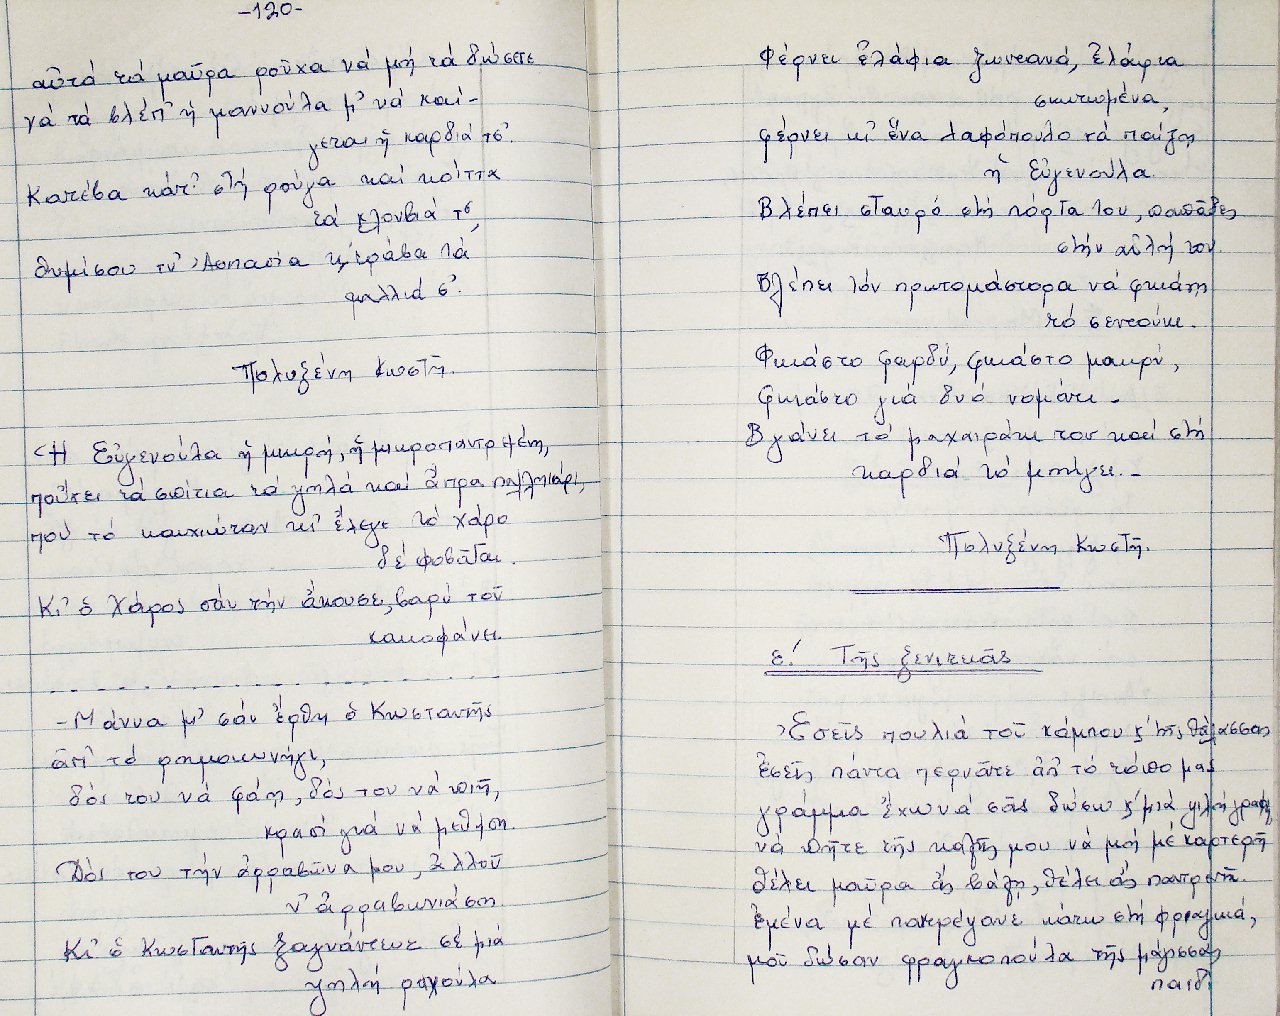 -120-
αὐτά τά μαῦρα ροῦχα νά μή τά δώσετε
νά τά βλέπ' ἡ μαννούλα μ' νά καί-
γεται ἡ καρδιά τσ'.
Κατέβα κάτ' στή ρούγα καί κοίττα
τά κλουβιά τσ,
θυμίσου τν' Ἀσπασία κ' τράβα τά
μαλλιά σ'.
Πολυξένη Κωστῆ.
Ἡ Εὐγενούλα ἡ μικρή, ἡ μικροπαντρεμένη,
πὤχει τά σπίτια τά ψηλά καί ἄντρα παλληκάρι,
πού τό καυχιώταν κι' ἔλεγε τό χάρο
δέ φοβᾶται.
Κι' ὁ Χάρος σάν τήν ἄκουσε, βαρύ τοῦ
κακοφάνει.
- Μάννα μ' σάν ἔρθη ὁ Κωσταντῆς
ἀπ' τό
δός του νά φάη, δός του νά πιῆ,
κρασί γιά νά μεθύση.
Δός του τήν ἀρραβῶνα μου, ἀλλοῦ
ν' ἀρραβωνιάση.
Κι' ὁ Κωσταντῆς ξαγνάντευε σέ μιά
ψηλή ραχούλα
Φέρνει ἐλάφια ζωντανά, ἐλάφια
σκοτωμένα,
φέρνει κι' ἕνα λαφόπουλο νά παίζη
ἡ Εὐγενούλα.
Βλέπει σταυρό στή πόρτα του, παπᾶδες
στήν αὐλή του.
Βλέπει τόν πρωτομάστορα νά φκιάνη
τό σεντούκι.
Φκιάστο φαρδύ, φκιάστο μακρύ,
φκιάστο γιά δυό νομάτι -
Βγάνει τό μαχαιράκι του καί στή
καρδιά τό μπήγει. -
Πολυξένη Κωστῆ.
ε.' Τῆς ξενιτειᾶς
Ἐσεῖς πουλιά τοῦ κάμπου κ' τῆς θάλασσας
ἐσεῖς πάντα περνᾶτε ἀπ' τό τόπο μας
γράμμα ἔχω νά σᾶς δώσω κ' μιά ψιλή γραφή
νά πῆτε τῆς καλῆς μου νά μή μέ καρτερῆ
θέλει μαῦρα ἄς βάλη, θέλει ἄς παντρευτῆ.
ἐμένα μέ παντρέψανε κάτω στή φραγκιά,
μοῦ δώσαν φραγκοπούλα τῆς μάγισσας
παιδί